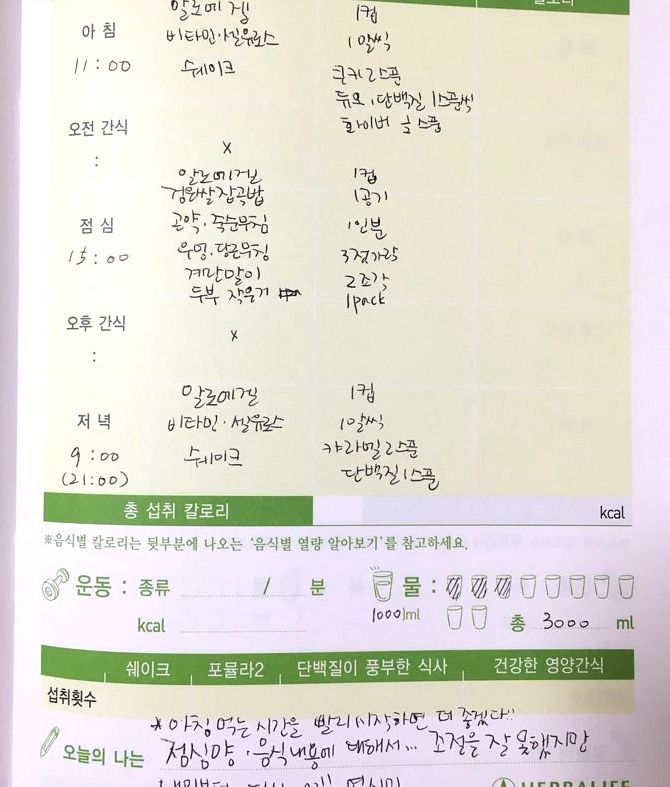 칼로리
알로에 겔 1컵
아침 비타민·셀유로스 1알씩
11:00 쉐이크 쿠키 2스푼
단백질 1스푼씩
화이버
오전 간식
: x
알로에겔 1컵
잡곡밥 1공기
점심 곤약·죽순무침 1인분
15:00 우엉·당근무침 3젓가락
계란말이 2조각
두부 작은거 1pack
오후 간식
: x
알로에겔 1컵
저녁 비타민·셀유로스 1알씩
9:00 쉐이크 캬라멜 2스푼
(21:00) 단백질 1스푼
총 섭취 칼로리 kcal
※음식별 칼로리는 뒷부분에 나오는 '음식별 열량 알아보기'를 참고하세요.
운동 : 종류 / 분 물 :
kcal 1000)ml 총 3000 ml
쉐이크 포뮬라2 단백질이 풍부한 식사 건강한 영양간식
섭취횟수
* 아침 먹는 시간을 빨리 시작하면 더 좋겠다!!
오늘의 나는 점심양·음식내용에 대해서... 조절을 잘 못했지만
HERBALIFE